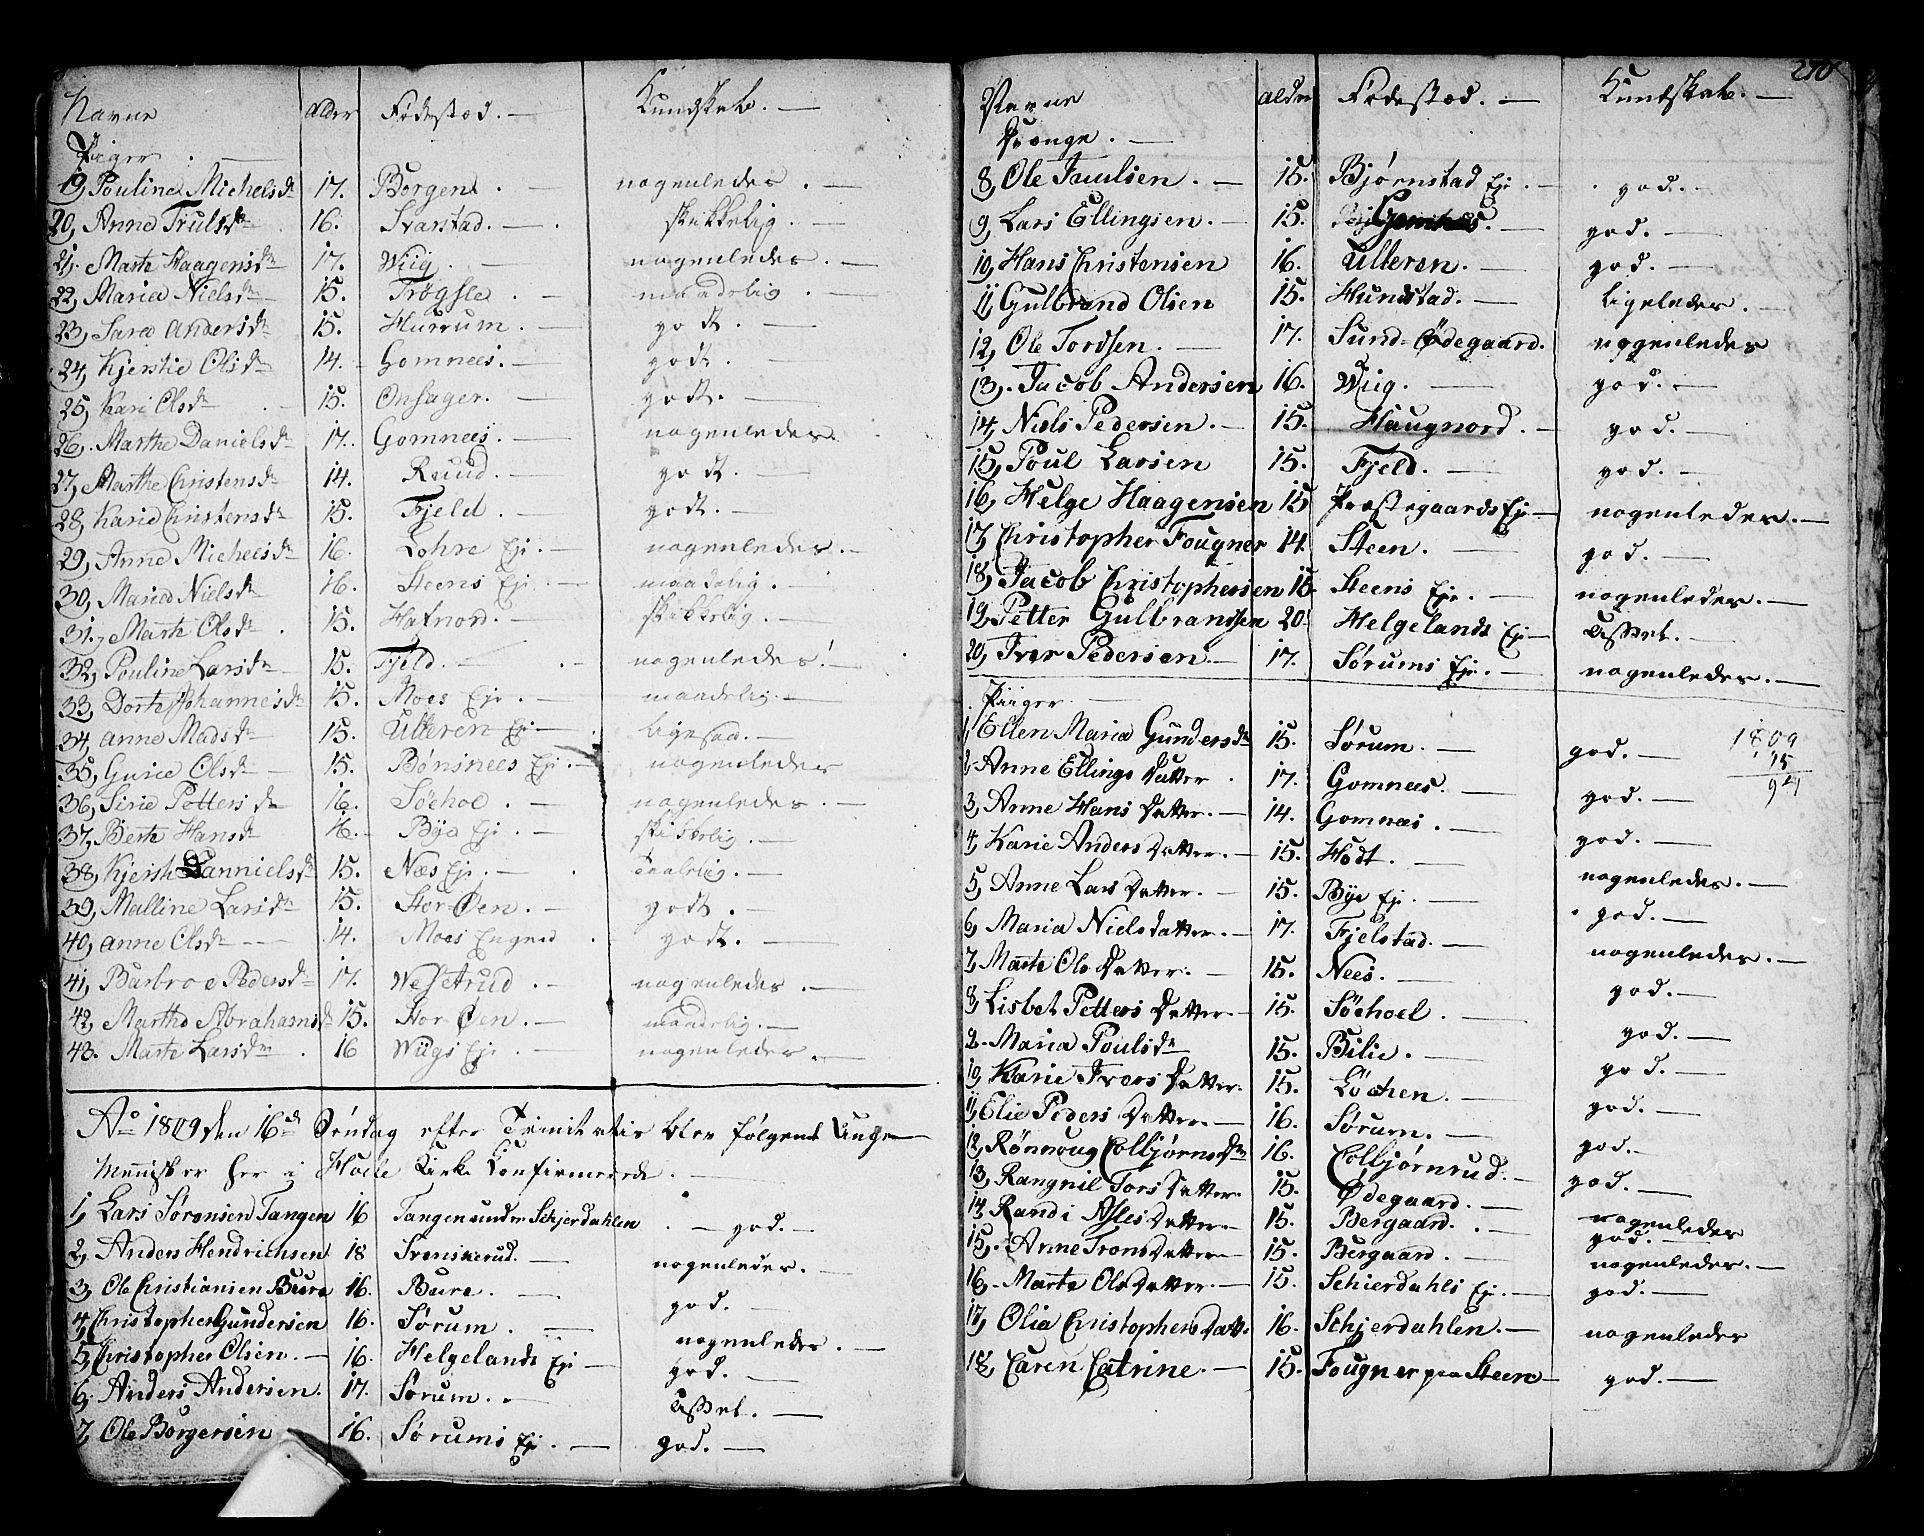 Navne Alder Fødestæd. Kundskab.
Piger
19, Pouline Michelsdr 17. Borgen nogenledes.
20, Anne Trulsdr 16. Svarstad. skikkelig.
21. Marte Haagensdr 17. Wiig. nogenledes.
22, Maria Nielsdr 15. Trøgsle maadelig.
23, Sara Andersdr 15. Hurrum. godt.
24, Kjerstie Olsdr 14. Gomnees. godt.
25, Kari Olsdr 15. Onsager. godt.
26. Marthe Danielsdr 17. Gomnees. nogenledes.
27, Marthe Christensdr 14. Ruud. godt.
28, Karie Christensdr 15. Fjeld. godt.
29, Anne Michelsdr 16. Lohre Eje. nogenledes.
30, Maria Nielsdr 16. Steens Eje. maadelig.
31., Marte Olsdr 15. Hafnord. skikkelig.
32, Pouline Larsdr 15. Fjeld. nogenledes.
33, Dorte Johannesdr 15. Moes Eje. maadelig.
34, Anne Madsdr 15. Ulleren Eje ligesaa.
35, Gurie Olsdr 15. Bønsnees Eje. nogenledes
36, Sirie Pettersdr 16. Søehoe. nogenledes.
37, Berte Hansdr 16. Bye Eje. skikkelig.
38, Kjersti Danielsdr 15. Næs Eje. taalelig.
39, Malline Larsdr 15. Stor-Øen. godt.
40, Anne Olsdr 14. Moes Engned godt.
41, Barbroe Pedersdr 17. Wesetrud. nogenledes.
42, Marthe Abrahamsdr 15. Stor-Øen. maadelig.
43. Marte Larsdr 16 Wiigs Eje nogenledes.
Ao 1809 den 16de Søndag efter Trinitatis blev følgende Unge
Mennisker her i Hole Kirke Confirmerede.
1, Lars Sørensen Tangen 16 Tangen under Schjerdahlen god.
2, Anders Hendrichsen 18 Svenskerud. nogenledes.
3, Ole Christiansen Bure 16. Bure. god.
4, Christopher Gundersen 16. Sørum. nogenledes.
5, Christopher Olsen. 16. Helgelands Eje god.
6. Anders Andersen. 17. Sørum. Usset.
7, Ole Borgersen 16. Sørums Eje. god.
270
Navne Alder Fødestæd. Kundskab.
Drenge.
8, Ole Paulsen. 15. Bjørnstad Eje. god.
9, Lars Ellingsen. 15. Gomnes. god.
10, Hans Christensen 16. Ulleren. god.
11, Gulbrand Olsen 15. Hundstad. ligeledes.
12, Ole Tordsen. 17. Sund-Ødegaard. nogenledes
13. Jacob Andersen 16. Wiig. god.
14, Niels Pedersen. 15. Haugnord. god.
15, Poul Larsen 15. Fjeld. god.
16, Helge Haagensen 15 Præstegaards Eje nogenledes.
17, Christopher Fougner 14. Steen. god.
18, Jacob Christophersen 15. Steens Eje. nogenledes.
19, Petter Gulbrandsen 20. Helgelands Eje Usset.
20, Iver Pedersen. 17. Sørums Eje. nogenledes.
Piiger
1, Ellen Maria Gundersdr 15. Sørum. god. 1809
15
94
2, Anne Ellings Datter 17. Gomnees. god.
3, Anne Hans Datter. 14. Gomnæs. god.
4, Karie Anders Datter. 15. Hødt. nogenledes.
5, Anne Lars Datter. 15. Bye Ej. god.
6, Maria Niels Datter. 17. Fjelstad. nogenledes.
7, Marte Ols Datter. 15. Nees. god.
8, Lisbet Petters Datter 15. Søehoel. god.
9. Maria Poulsdr 15. Bilie. god.
10, Karie Ivers Datter. 15. Løchen. god.
11, Elie Peders Datter. 16. Sørum. god.
12, Rønnoug Colbjørnsdr 16. Colbjørnrud. god.
13, Rangnil Tors Datter. 15. Ødegaard. nogenledes
14, Randi Asles Datter 15. Bergaard. god.
15, Anne Trons Datter 15. Bergaard. nogenledes.
16. Marte Ols Datter. 15. Schierdahls Eje. god.
17, Olia Christophers Datt. 16. Schjerdahlen. nogenledes
18, Caren Catrine. 15. Fougner paa Steen god.